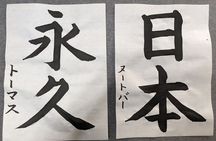 日本
ヌートバー
永久
トーマス